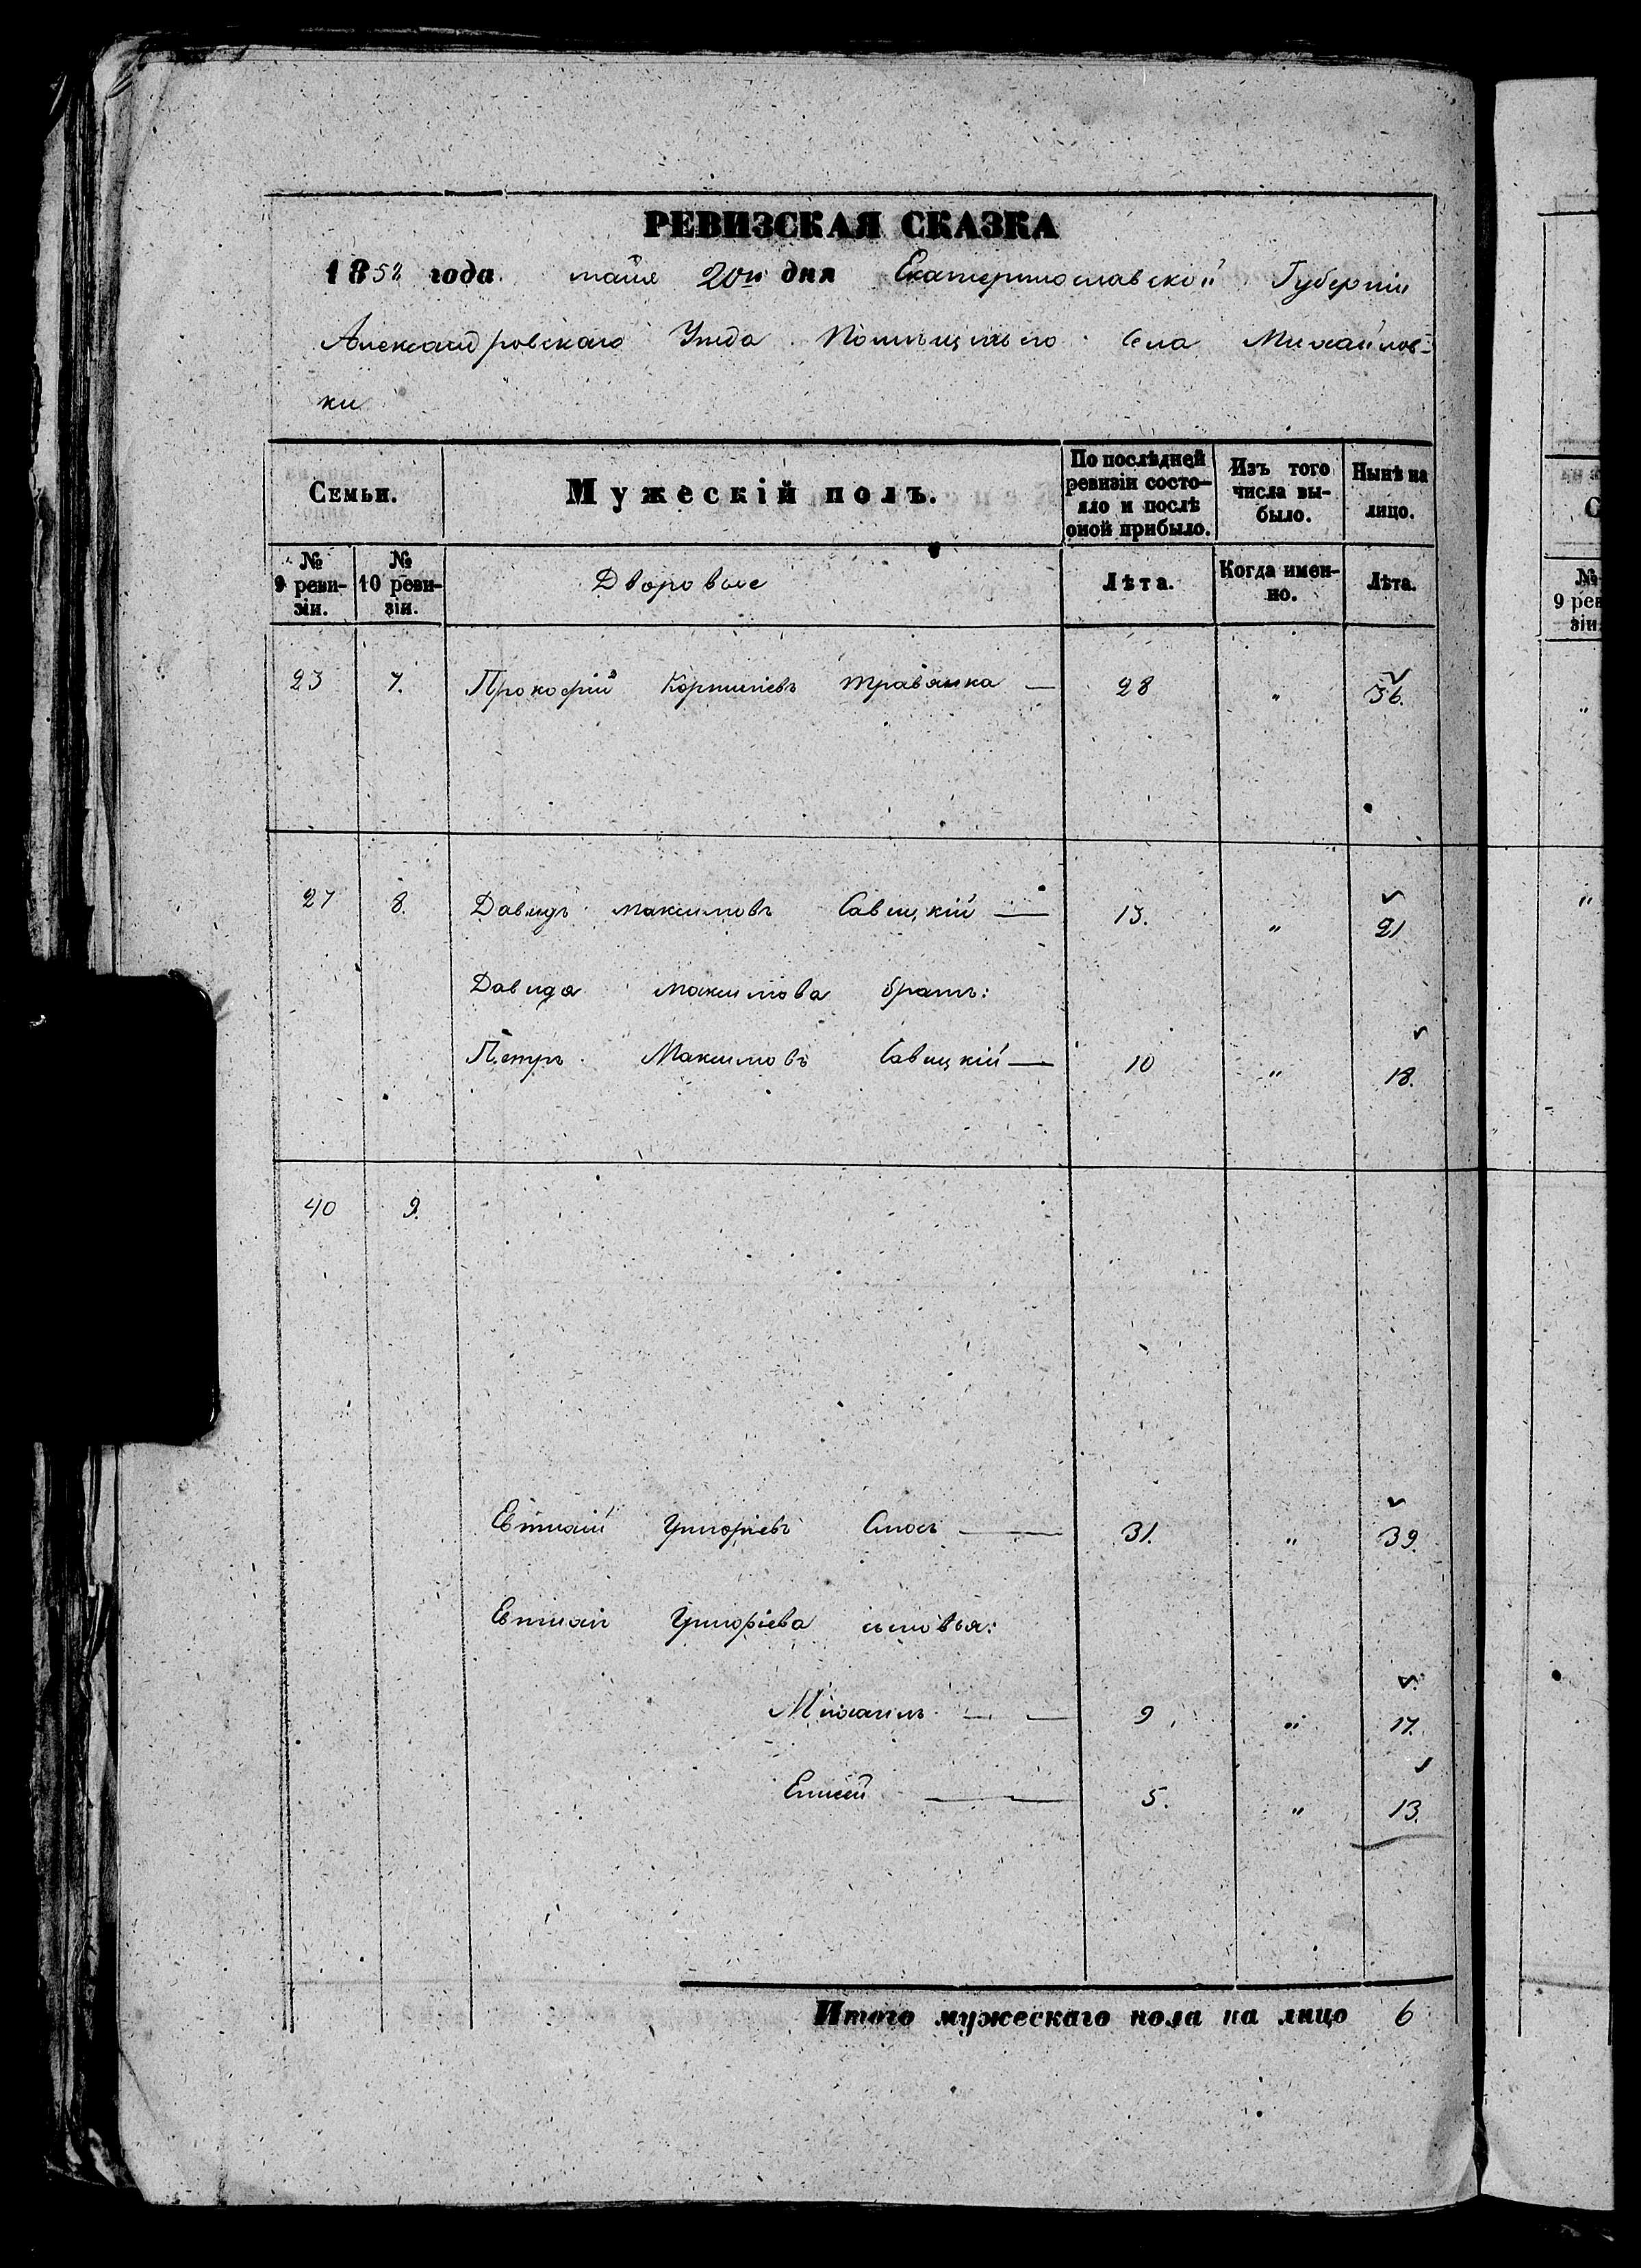 РЕВИЗСКАЯ СКАЗКА
1858 года мая 20го дня Екатеринославской Губерніи
Александровскаго Уезда Помѣщичьяго Села Михайлов-
ки
Семьи. Мужескій полъ. По послѣдней ревизіи состо-яло и послѣ оной прибыло. Изъ того числа вы-было. Нынѣ на лицо.
№ 9 реви-зіи. № 10 реви-зіи. Дворовые Лѣта. Когда имен-но. Лѣта.
23 7. Прокофій Корнилiевъ Травянка — 28 " 36.
27 8. Давидъ Максимовъ Савицкій — 13. " 21
Давида Максимова братъ:
Петръ Максимовъ Савицкій — 10 " 18.
40 9.
Григоріевъ — 31. " 39.
Григоріева сыновья:
Михаилъ — — 9 " 17.
Елисей — 5. " 13.
Итого мужескаго пола на лицо 6
№
9 рев
зіи.